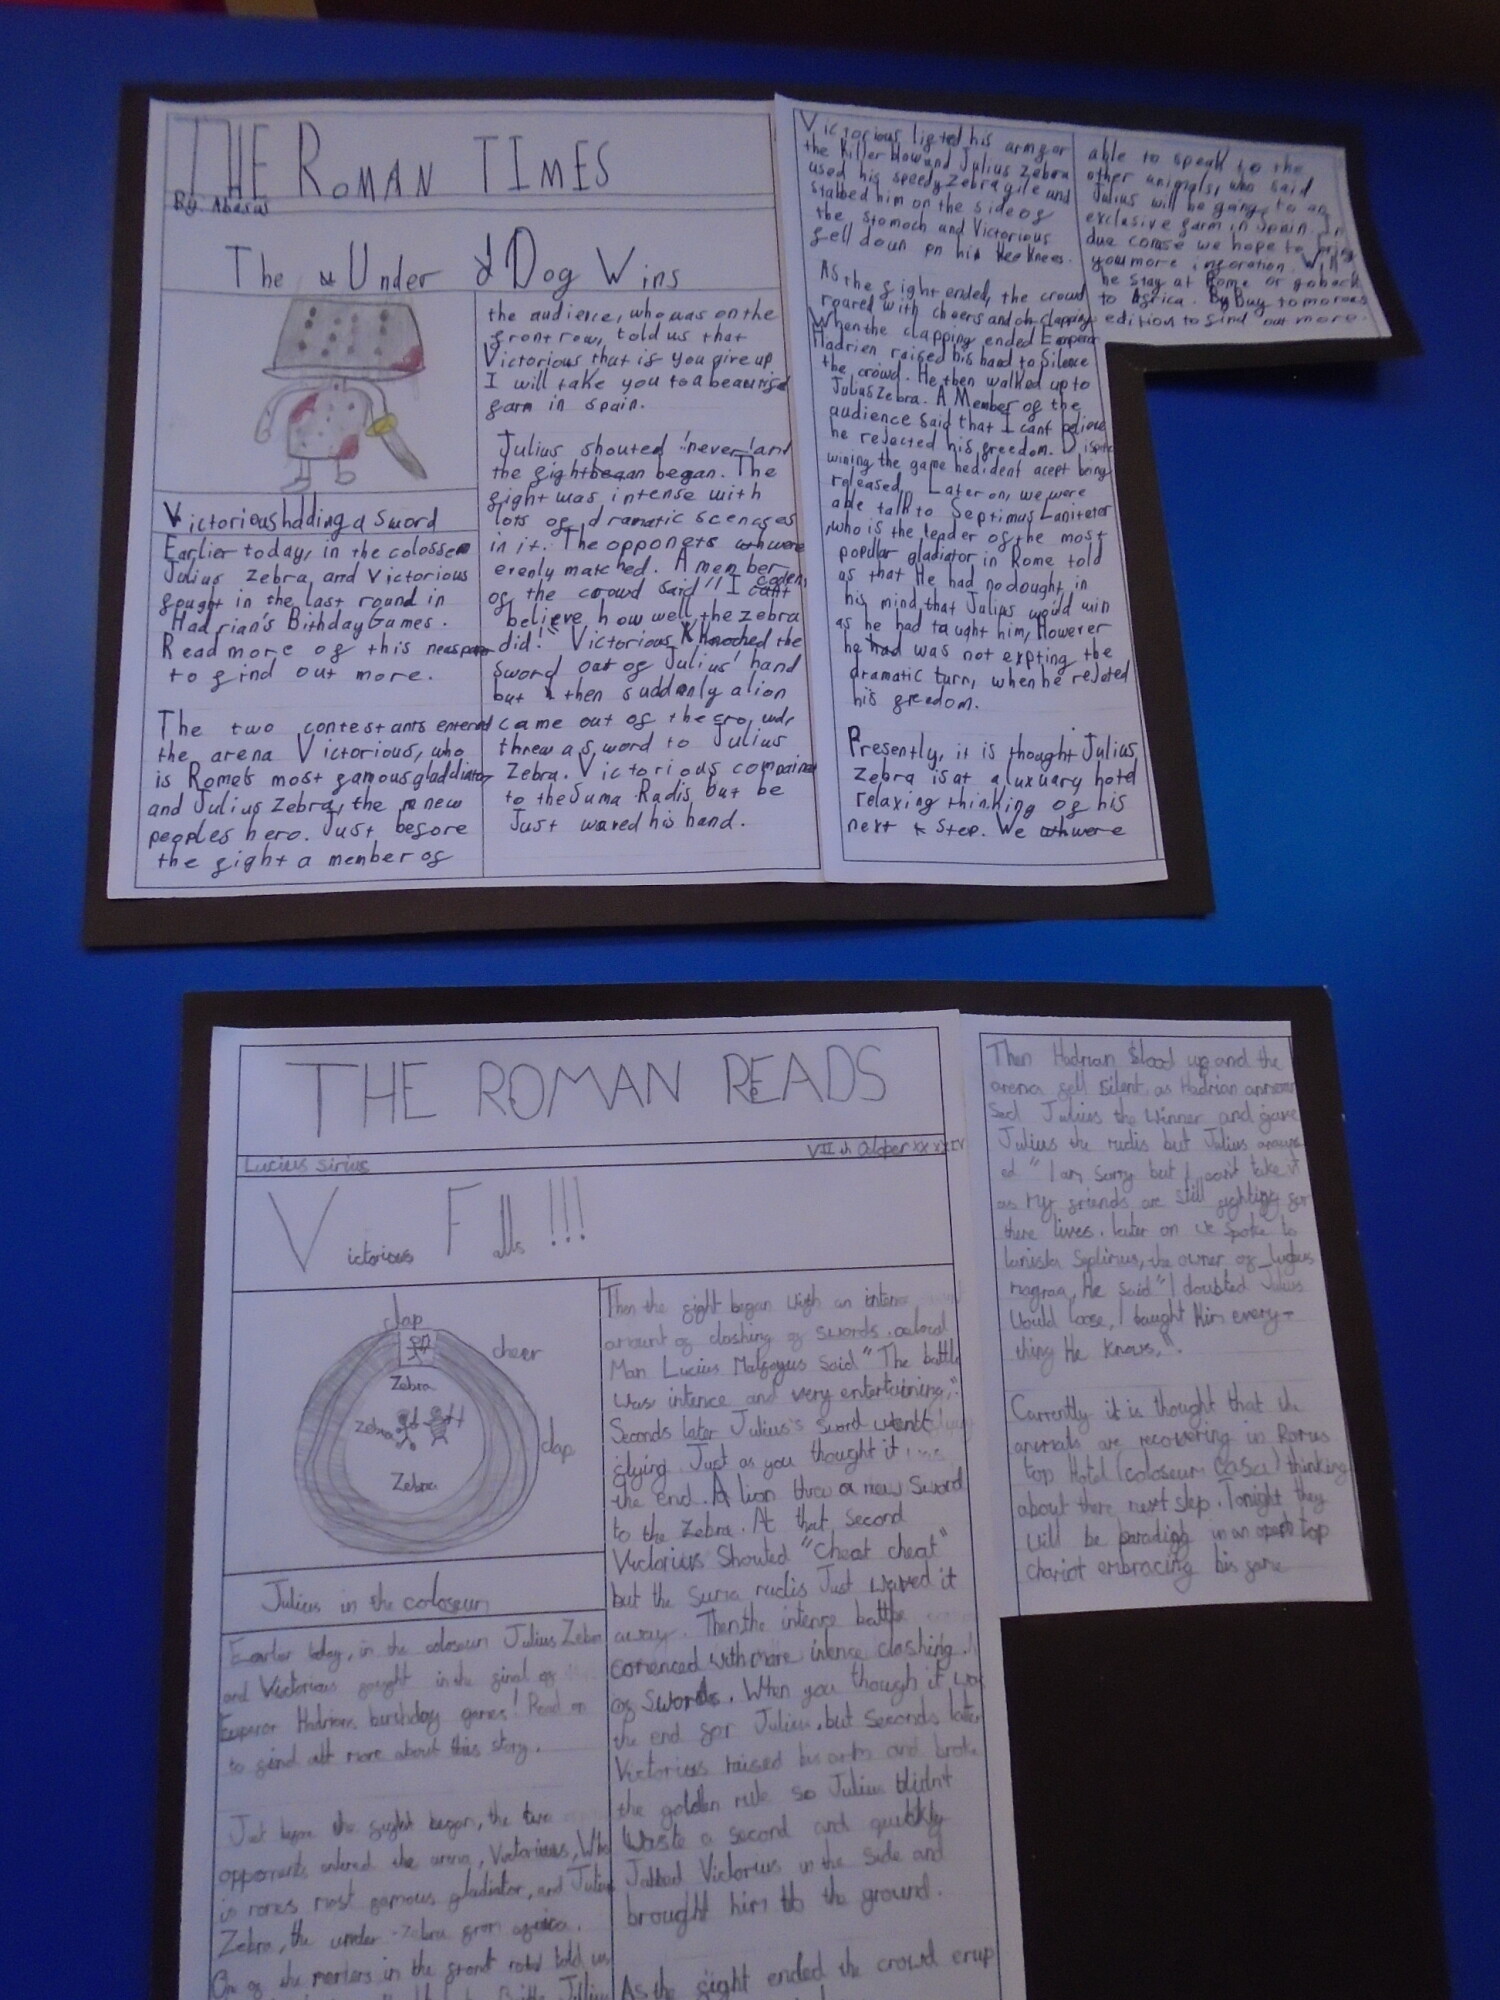 THE ROMAN TIMES
By: Abasus
The Under Dog Wins
Victorious holding a sword
Earlier today, in the colosseo
Julius Zebra, and Victorious
fought in the last round in
Hadrian's Bithday Games.
Read more of this newspaper
to find out more.
The two contestants entered
the arena Victorious, who
is Rome's most famous gladdiator
and Julius Zebra, the new
peoples hero. Just before
the fight a member of
the audience, who was on the
front row, told us that
Victorious that if you give up
I will take you to a
farm in spain.
Julius shouted 'never' and
the fight began began. The
fight was intense with
lots of dramatic
in it. The were
evenly matched. A member
of the crowd said "I
believe how well the zebra
did!" Victorious Knocked the
Sword out of Julius' hand
but then suddenly a lion
came out of the crowd,
threw a sword to Julius
Zebra. Victorious
to the Suma Radis but he
Just waved his hand.
Victorious lifted his arm for
the killer blow and Julius Zebra
used his speedy Zebra gile and
stabbed him on the side of
the stomoch and Victorious
fell down on his Knees.
As the fight ended, the crowd
roared with cheers and clapping
When the clapping ended Emperor
Hadrien raised his hand to Silence
the crowd. He then walked up to
Julius Zebra. A Member of the
audience said that I cant believe
he rejected his freedom. Dispite
wining the game he dident acept being
released. Later on, we were
able talk to Septimus Lanister
who is the leader of the most
popular gladiator in Rome told
as that He had no dought in
his mind that Julius would win
as he had taught him, However
he was not expting the
dramatic turn, when he rejoted
his freedom.
Presently, it is thought Julius
Zebra is at a luxuary hotel
relaxing thinking of his
next step. We were
able to speak to the
other animals, who said
Julius will be going to an
exclusive farm in Spain. In
due corse we hope to bring
you more inforation. Will
he stay at Rome or go back
to Africa. Buy tomorows
edition to find out more.
THE ROMAN READS
Lucius sirius
VII th October
Victorious Falls!!!
clap
cheer
clap
Zebra
Zebra
Zebra
Julius in the coloseum
Earlier today, in the coloseum Julius Zebra
and Victorious fought in the final of
Emperor Hadrians birthday games! Read on
to find out more about this story.
Just before the fight began, the two
opponents entered the arena, Victorious, Who
is romes most famous gladiator, and Julius
Zebra, the under-zebra from africa.
One of the in the front told us
Then the fight began with an intence
amount of clashing of swords. old
Man Lucius said "The battle
was intence and very entertaining,"
Seconds later Julius's sword went
flying. Just as you thought it was
the end. A lion threw a new Sword
to the Zebra. At that second
Victorius Shouted "Cheat cheat"
but the suma rudis Just waved it
away. Then the intence battle
comenced with more intence clashing
of swords. When you though it was
the end for Julius, but Seconds later
Victorius raised his arm and broke
the golden rule so Julius didnt
Waste a second and quickly
Jabbed Victorius in the side and
brought him to the ground.
As the fight ended the crowd erup
Then Hadrian Stood up and the
arena fell silent, as Hadrian announ
sed Julius the Winner and gave
Julius the rudis but Julius
ed "I am Sorry but I can't take it
as my friends are still fighting for
there lives. later on we spoke to
lanista Septimus, the owner of Ludus
magnus, He said "I doubted Julius
Would loose, I taught him every-
thing He knows,".
Currently it is thought that the
animals are recovering in Romes
top Hotel (coloseum Casa) thinking
about there next step. Tonight they
will be parading in an open top
chariot embracing his fame